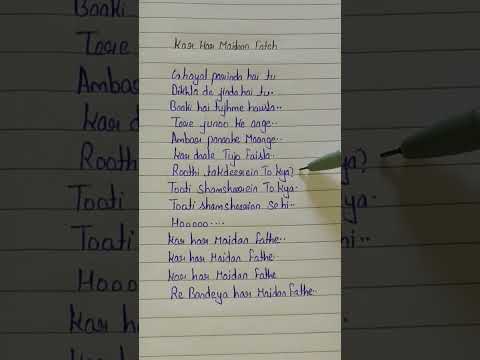 Kar Har Maidaan Fateh
Ghayal parinda hai tu
Dikhla de jinda hai tu..
Baaki hai tujhme hausla..
Tere junoo ke aage..
Ambar panaahe Maange..
Kar daale Tujo Faisla..
Roothi takdeerein To kya?
Tooti Shamsheerein To kya.
Tooti shamsheeron se hi..
Hooooo....
Kar har Maidan fathe..
Kar har Maidan fathe..
Kar har Maidan Fathe
Re Bandeya har Maidan Fathe..